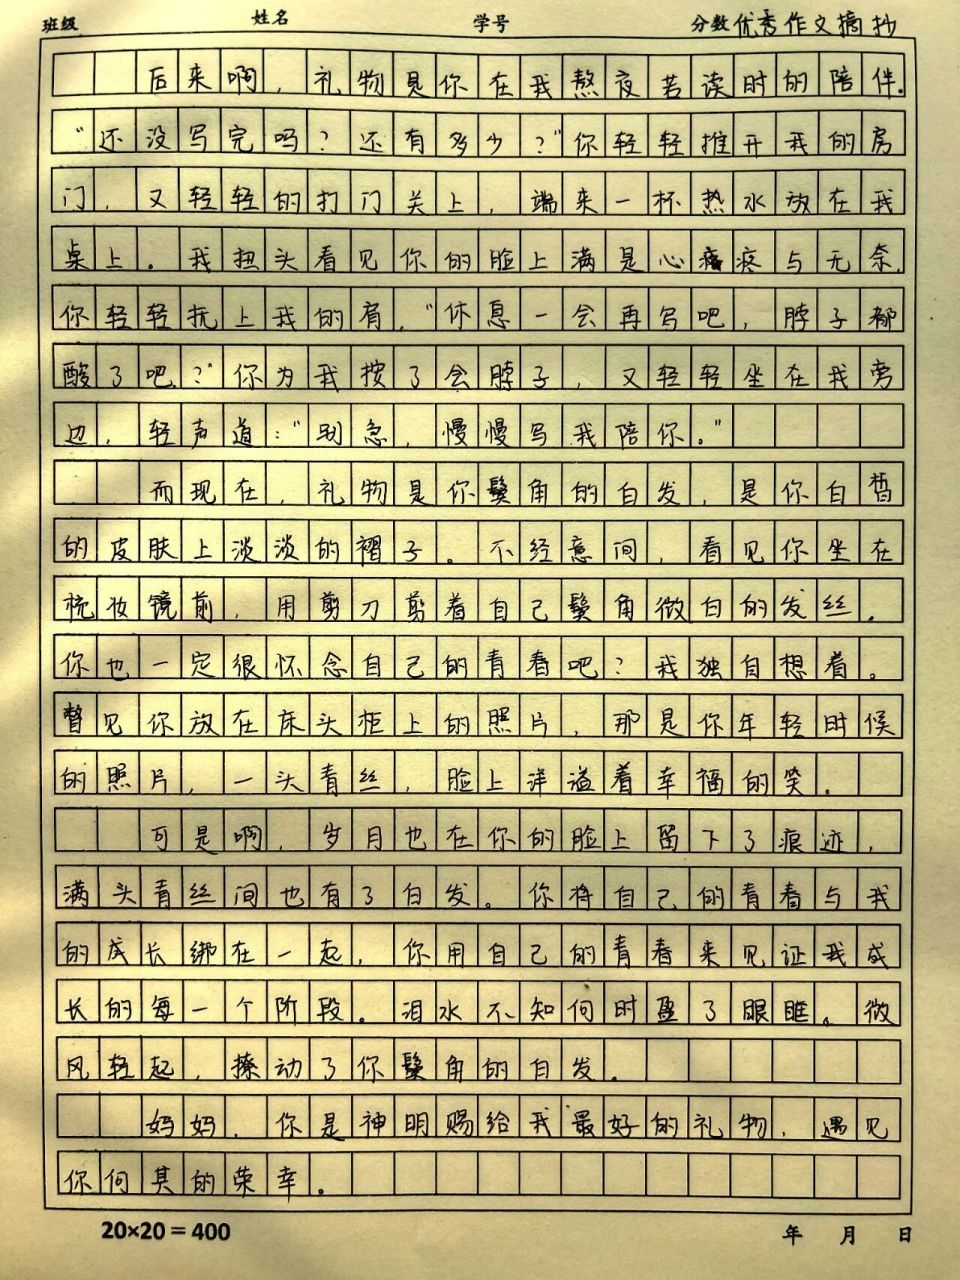 班级 姓名 学号 分数 优秀作文摘抄
后来啊，礼物是你在我熬夜苦读时的陪伴。
“还没写完吗？还有多少？”你轻轻推开我的房
门，又轻轻的打门关上，端来一杯热水放在我
桌上。我扭头看见你的脸上满是心疼与无奈，
你轻轻抚上我的肩，“休息一会再写吧，脖子都
酸了吧？”你为我按了会脖子，又轻轻坐在我旁
边，轻声道：“别急，慢慢写我陪你。”
而现在，礼物是你鬓角的白发，是你白皙
的皮肤上淡淡的褶子。不经意间，看见你坐在
梳妆镜前，用剪刀剪着自己鬓角微白的发丝。
你也一定很怀念自己的青春吧？我独自想着。
瞥见你放在床头柜上的照片，那是你年轻时候
的照片，一头青丝，脸上洋溢着幸福的笑。
可是啊，岁月也在你的脸上留下了痕迹，
满头青丝间也有了白发。你将自己的青春与我
的成长绑在一起，你用自己的青春来见证我成
长的每一个阶段。泪水不知何时盈了眼眶。微
风轻起，撩动了你鬓角的白发。
妈妈，你是神明赐给我最好的礼物，遇见
你何其的荣幸。
20×20=400 年 月 日